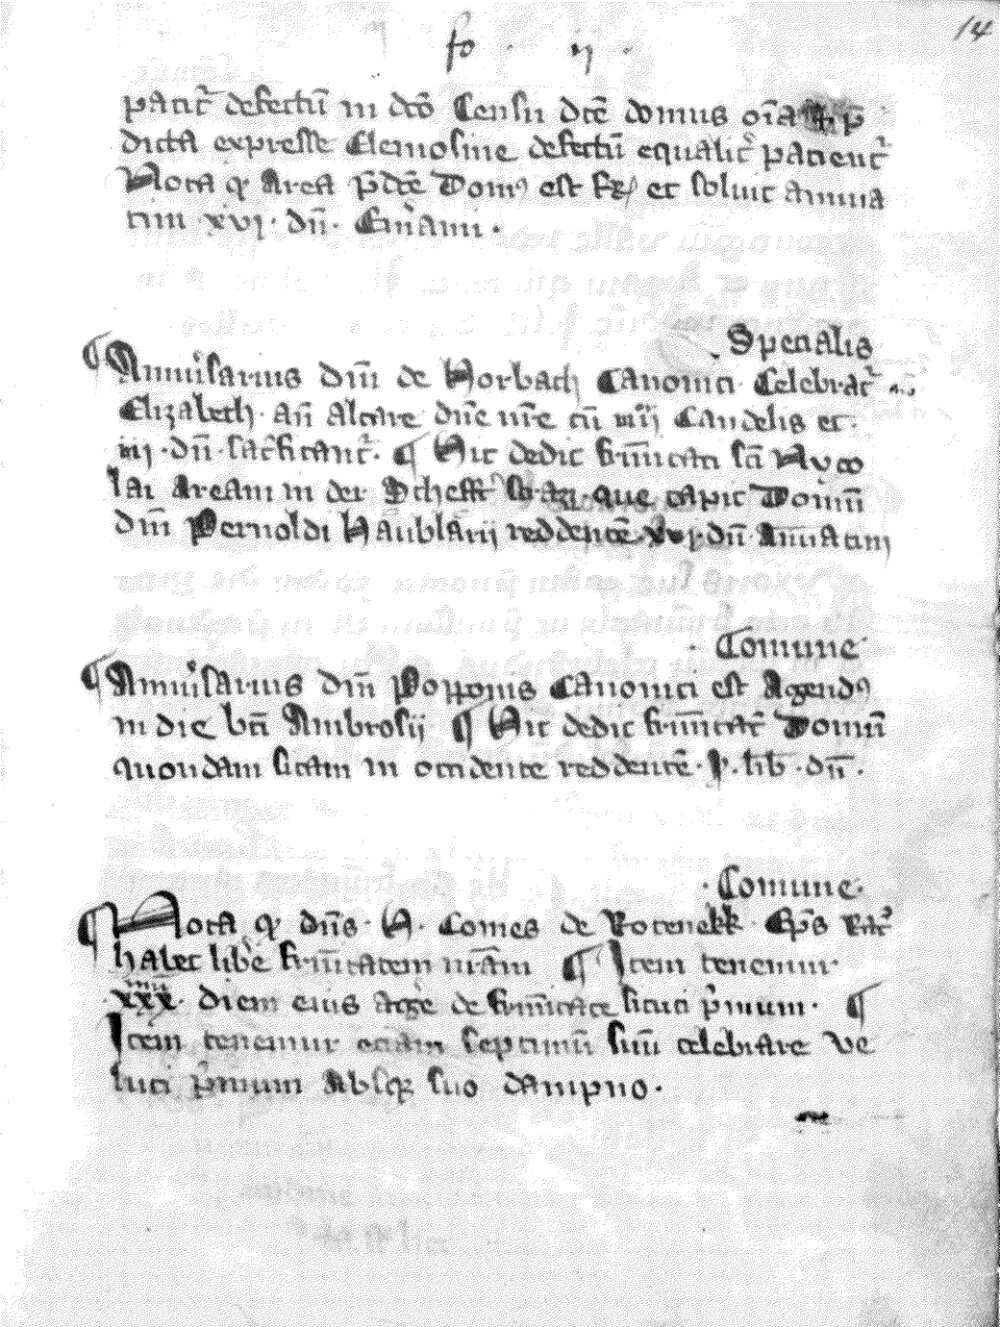 14
fo · ij ·
patit᷑ defectū in dc̄o Censu dc̄e domus oī̄a p̄
dicta expresse Elemosine defectū equalit᷑ patient᷑
Nota ꝙ Area p̄dc̄e Domꝰ est et soluit annua
tim xvj · dn̄ · Em̄anii ·
Specialis
¶ Anniu͛sarius dn̄i de Horbach Canonici Celebrat᷑
Elizabeth · an̄ altare dn̄e nr̄e cū iiij Candelis et ·
iij · dn̄ · sac̄ficant᷑ · ¶ Hic dedit fr̄nitati sc̄i
lai Aream in der que capit Domū
dn̄i Pernoldi Haublarij reddentē · xvj · dn̄ · Annuatim
Comune
¶ Anniu͛sarius dn̄i Popponis Canonici est Agendꝰ
in die bt̄i Ambrosij ¶ Hic dedit fr̄nitati Domū
quondam sitam in occidente reddentē · j · lib · dn̄ ·
· Comune ·
¶ Nota ꝙ dn̄s · H · Comes de Rotenekk · Ep̄s
habet libē fr̄nitatem nr̄am ¶ Item tenemur
· xxx · diem eius agē de fr̄nitate sicuti p̄mum · ¶
Item tenemur eciam septimū suū celebrare ve
luti p̄mum absqꝫ suo dampno ·